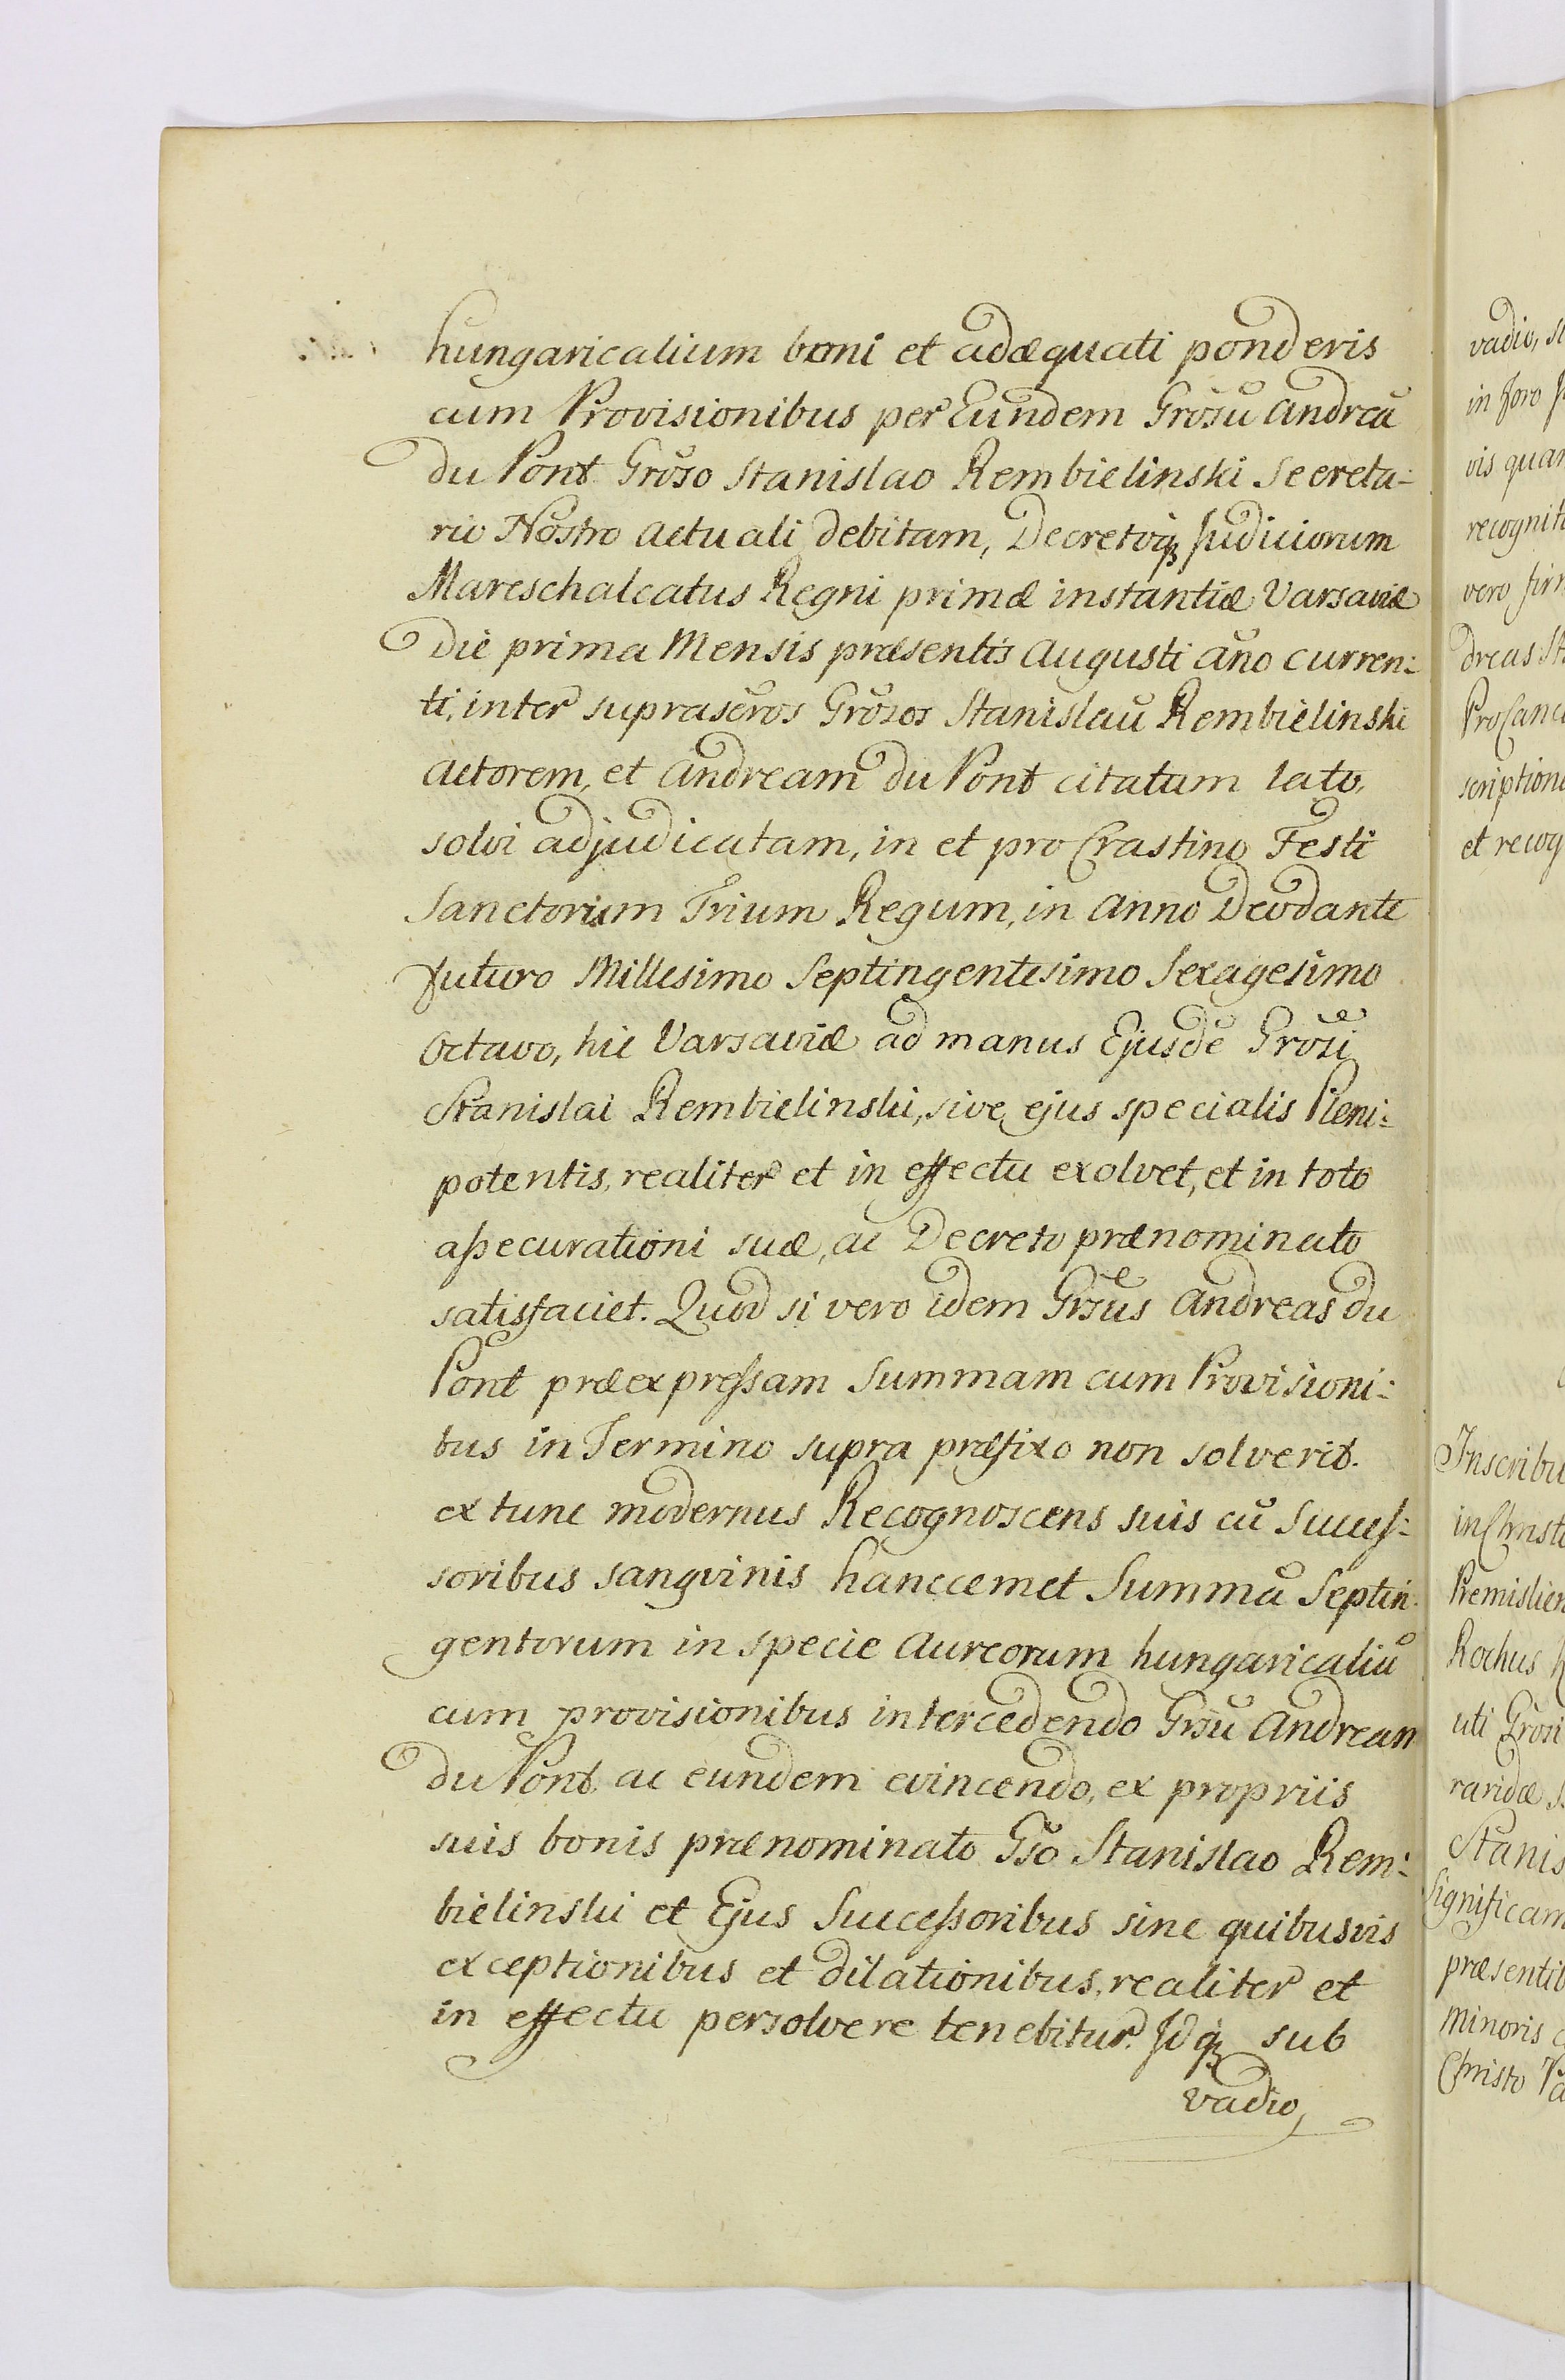 hungaricalium boni et adæquati ponderis
cum Provisionibus per Eundem Grosũ Andreã
du Pont Groso Stanislao Rembielinski Secreta-
rio Nostro actuali debitam, Decretoq Judiciorum
Mareschalcatus Regni primæ instantiæ Varsaviæ
die prima Mensis præsentis Augusti ão curren-
ti, inter suprascros Grosos Stanislaũ Rembielinski
actorem, et Andream du Pont citatum lato,
solvi adjudicatam, in et pro Crastino Festi
Sanctorum Trium Regum, in Anno Deodante
futuro Millesimo Septingentesimo Sexagesimo
Octavo, hic Varsaviæ ad manus Ejusdẽ Grosi
Stanislai Rembielinski, sive ejus specialis Pleni-
potentis, realiter et in effectu exolvet, et in toto
aßecurationi suæ, ac Decreto prænominato
satisfaciet. Quod si vero idem Grsus Andreas du
Pont præexpreßam Summam cum Provisioni-
bus in Termino supra præfixo non solverit.
ex tunc modernus Recognoscens suis cũ Succes-
soribus sangvinis hanccemet Summã Septin-
gentorum in specie Aureorum hungaricaliũ
cum provisionibus intercedendo Grsũ Andream
du Pont ac eundem evincendo, ex propriis
suis bonis prænominato Gso Stanislao Rem-
bielinski et Ejus Succeßoribus sine quibusvis
exceptionibus et dilationibus, realiter et
in effectu persolvere tenebitur. Idq sub
vadio,
vadio,
in foro
vis
recognit
vero
dreas
ProCanc
scription
et recog
Inscribu
in Christ
Premislien
Rochus
uti Grosi
randæ
Stanis
Significam
præsentib
Minoris
Christo